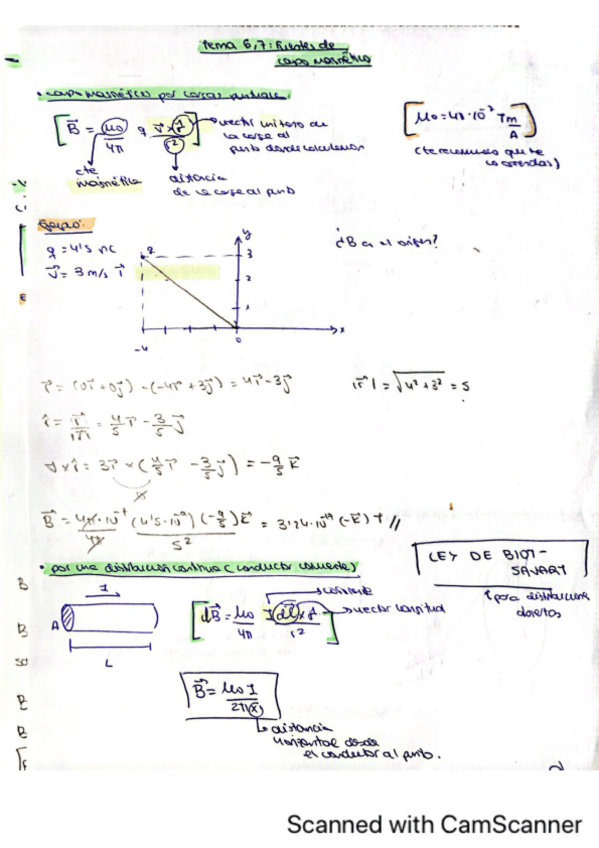 Tema 6,7: Fuentes de
campo magnético
• campo magnético por cargas puntuales.
[B⃗ = μ₀/4π q v⃗ × r̂/r²] → vector unitario de
la carga al
punto donde calculamos
cte
magnética
distancia
de la carga al punto
[μ₀ = 4π·10⁻⁷ Tm/A]
Ejemplo:
q = 4's nC
v⃗ = 3 m/s i⃗
¿B en el origen?
q
y
3
2
1
-4
0
x
r⃗ = (0i⃗ + 0j⃗) - (-4i⃗ + 3j⃗) = 4i⃗ - 3j⃗
|r⃗| = √4² + 3² = 5
r̂ = r⃗/|r⃗| = 4/5 i⃗ - 3/5 j⃗
v⃗ × r̂ = 3i⃗ × (4/5 i⃗ - 3/5 j⃗) = -9/5 k⃗
B⃗ = 4π·10⁻⁷/4π (4's·10⁻⁹)(-9/5)k⃗/5² = 3'24·10⁻¹⁹ (-k⃗) T //
• por una distribución continua (conductor corriente)
LEY DE BIOT-
SAVART
para distribuciones
I
A
L
[dB⃗ = μ₀/4π I dl⃗ × r̂/r²]
→ corriente
→ vector longitud
B⃗ = μ₀ I/2π x
distancia
horizontal desde
el conductor al punto.
Scanned with CamScanner